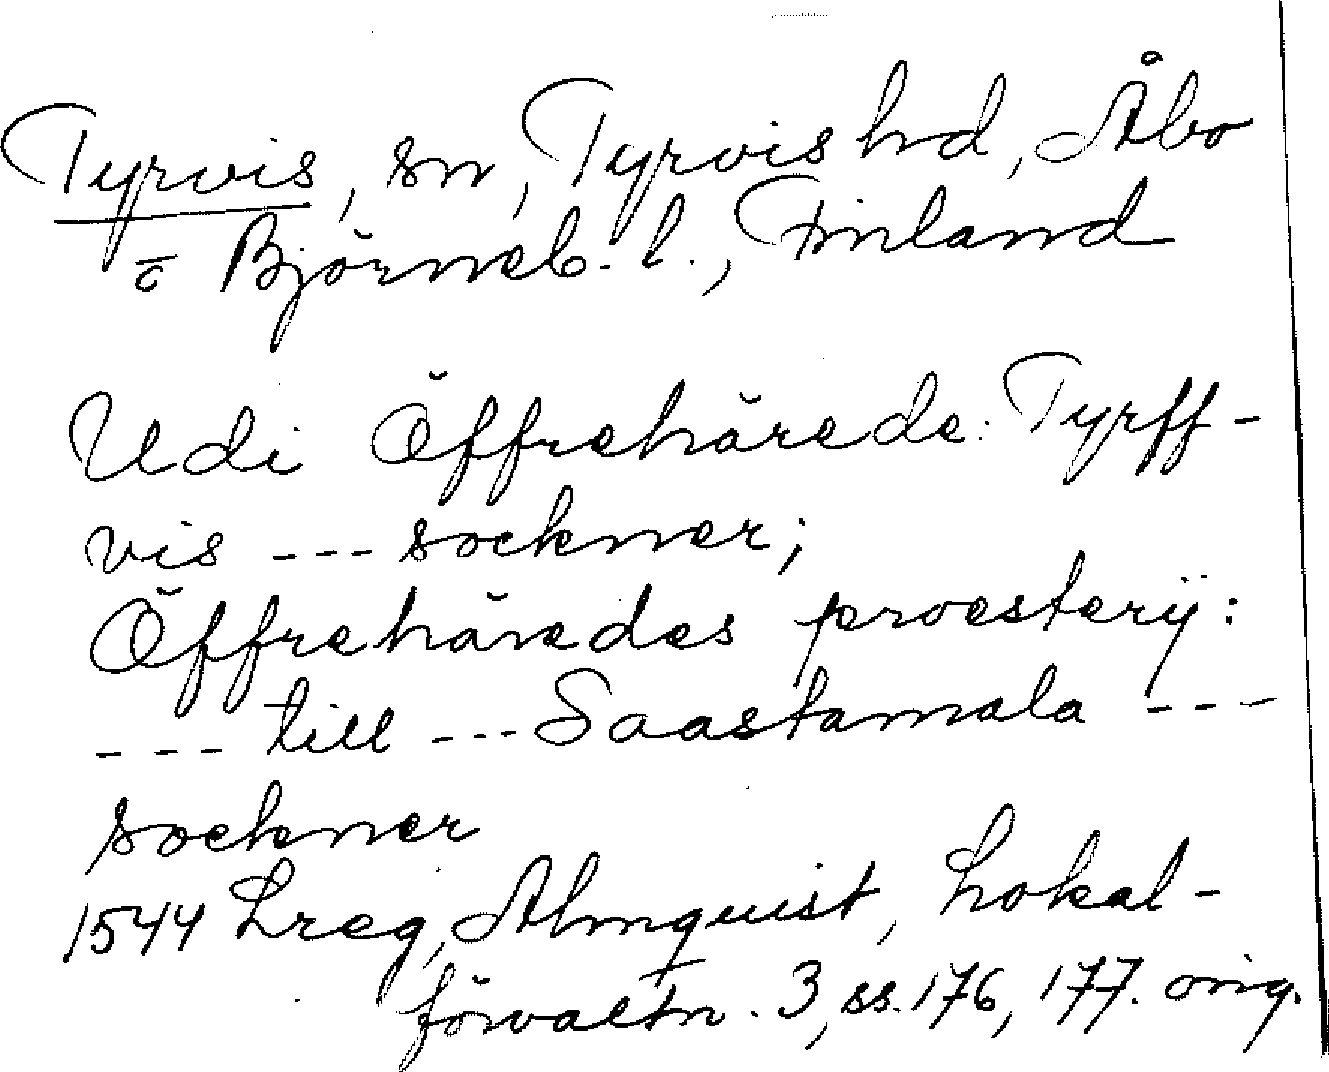 Tyrvis, sn, Tyrvis hd, Åbo
o Björneb. l., Finland
Udi Öffrehärede: Tyrff-
vis --- sockner;
Öffrehäredes proesterij:
--- till --- Saastamala ---
sockner
1544 Lreg, Almquist, Lokal-
förvaltn. 3, ss. 176, 177. orig.